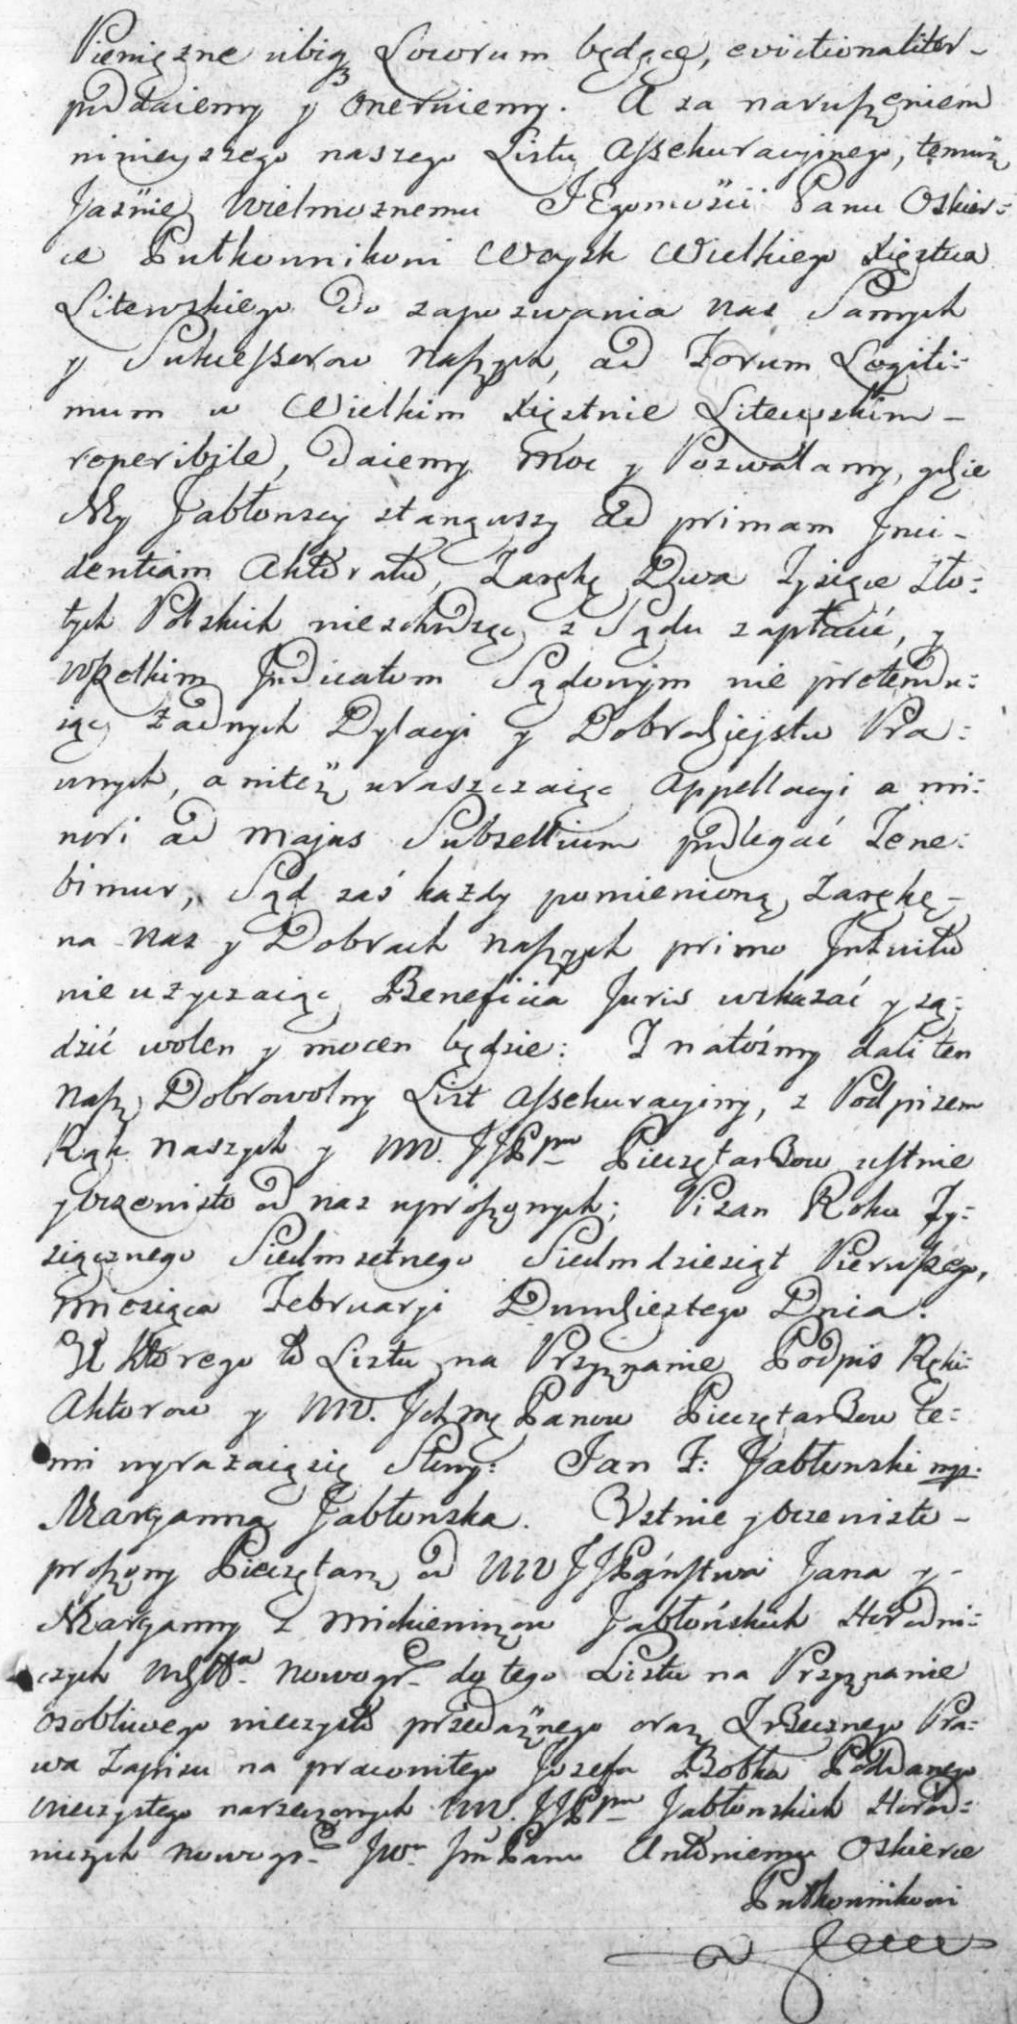 Pieniężne ubiq3 Locorum będące, evictionaliter-
poddaiemy y Oneruiemy. A za naruszeniem
ninieyszego naszego Listu Assekuracyinego, temuż
Jaśnie Wielmożnemu JEgomości Panu Oskier=
ce Pułkownikowi Woysk Wielkiego Xięstwa
Litewskiego do zapozwania nas Samych
y Sukcessorow naszych, ad Forum Legiti=
mum w Wielkim Xięstwie Litewskim-
reperibile, daiemy moc y Pozwalamy, gdzie
My Jabłonscy stanąwszy ad primam Inci-
dentiam Aktoratu, Zarękę Dwa Tysiące Zło=
tych Polskich niezchodząc z Sądu zapłacić, y
wszelkim Judicatom Sądowym nie pretendu=
iąc żadnych Dylacyi y Dobrodzieystw Pra=
wnych, aniteż wraszczaiąc Appellacyi a mi=
nori ad majus Subsellium podlegać Tene=
bimur, Sąd zaś każdy pomienioną Zarękę-
na nas y Dobrach naszych primo Intuitu
nieużyczaiąc Beneficia Juris wskazać y są=
dzić wolen y mocen będzie: I natośmy dali ten
nasz Dobrowolny List Assekuracyiny, z Podpisem
Rąk naszych y WW. JJPPnw Pieczętarzow ustnie
y oczewisto od nas uproszonych; Pisan Roku Ty=
siącznego Siedmsetnego Siedmdziesiąt Pierwszego,
miesiąca Februaryi Dwudziestego Dnia.
U ktorego to Listu na Przyznanie Podpis Ręki=
Aktorow y WW. Ichmc Panow Pieczętarzow te=
mi wyrażaią się Słowy: Jan F: Jabłonski mp:
Maryanna Jabłonska. Ustnie y oczewisto-
proszony Pieczętarz od WW JJPaństwa Jana y-
Maryanny z Mickiewiczow Jabłońskich Horodni=
czych Wgo Wdztwa Nowogr. do tego Listu na Przyznanie
osobliwego wieczysto przedażnego oraz Zrzecznego Pra=
wa Zapisu na pracowitego Jozefa Bobka Poddanego
wieczystego narzeczonych WW. JJPPnw Jabłonskich Horod=
niczych Nowogr. JWu Jmc Panu Antoniemu Oskierce
Pułkownikowi